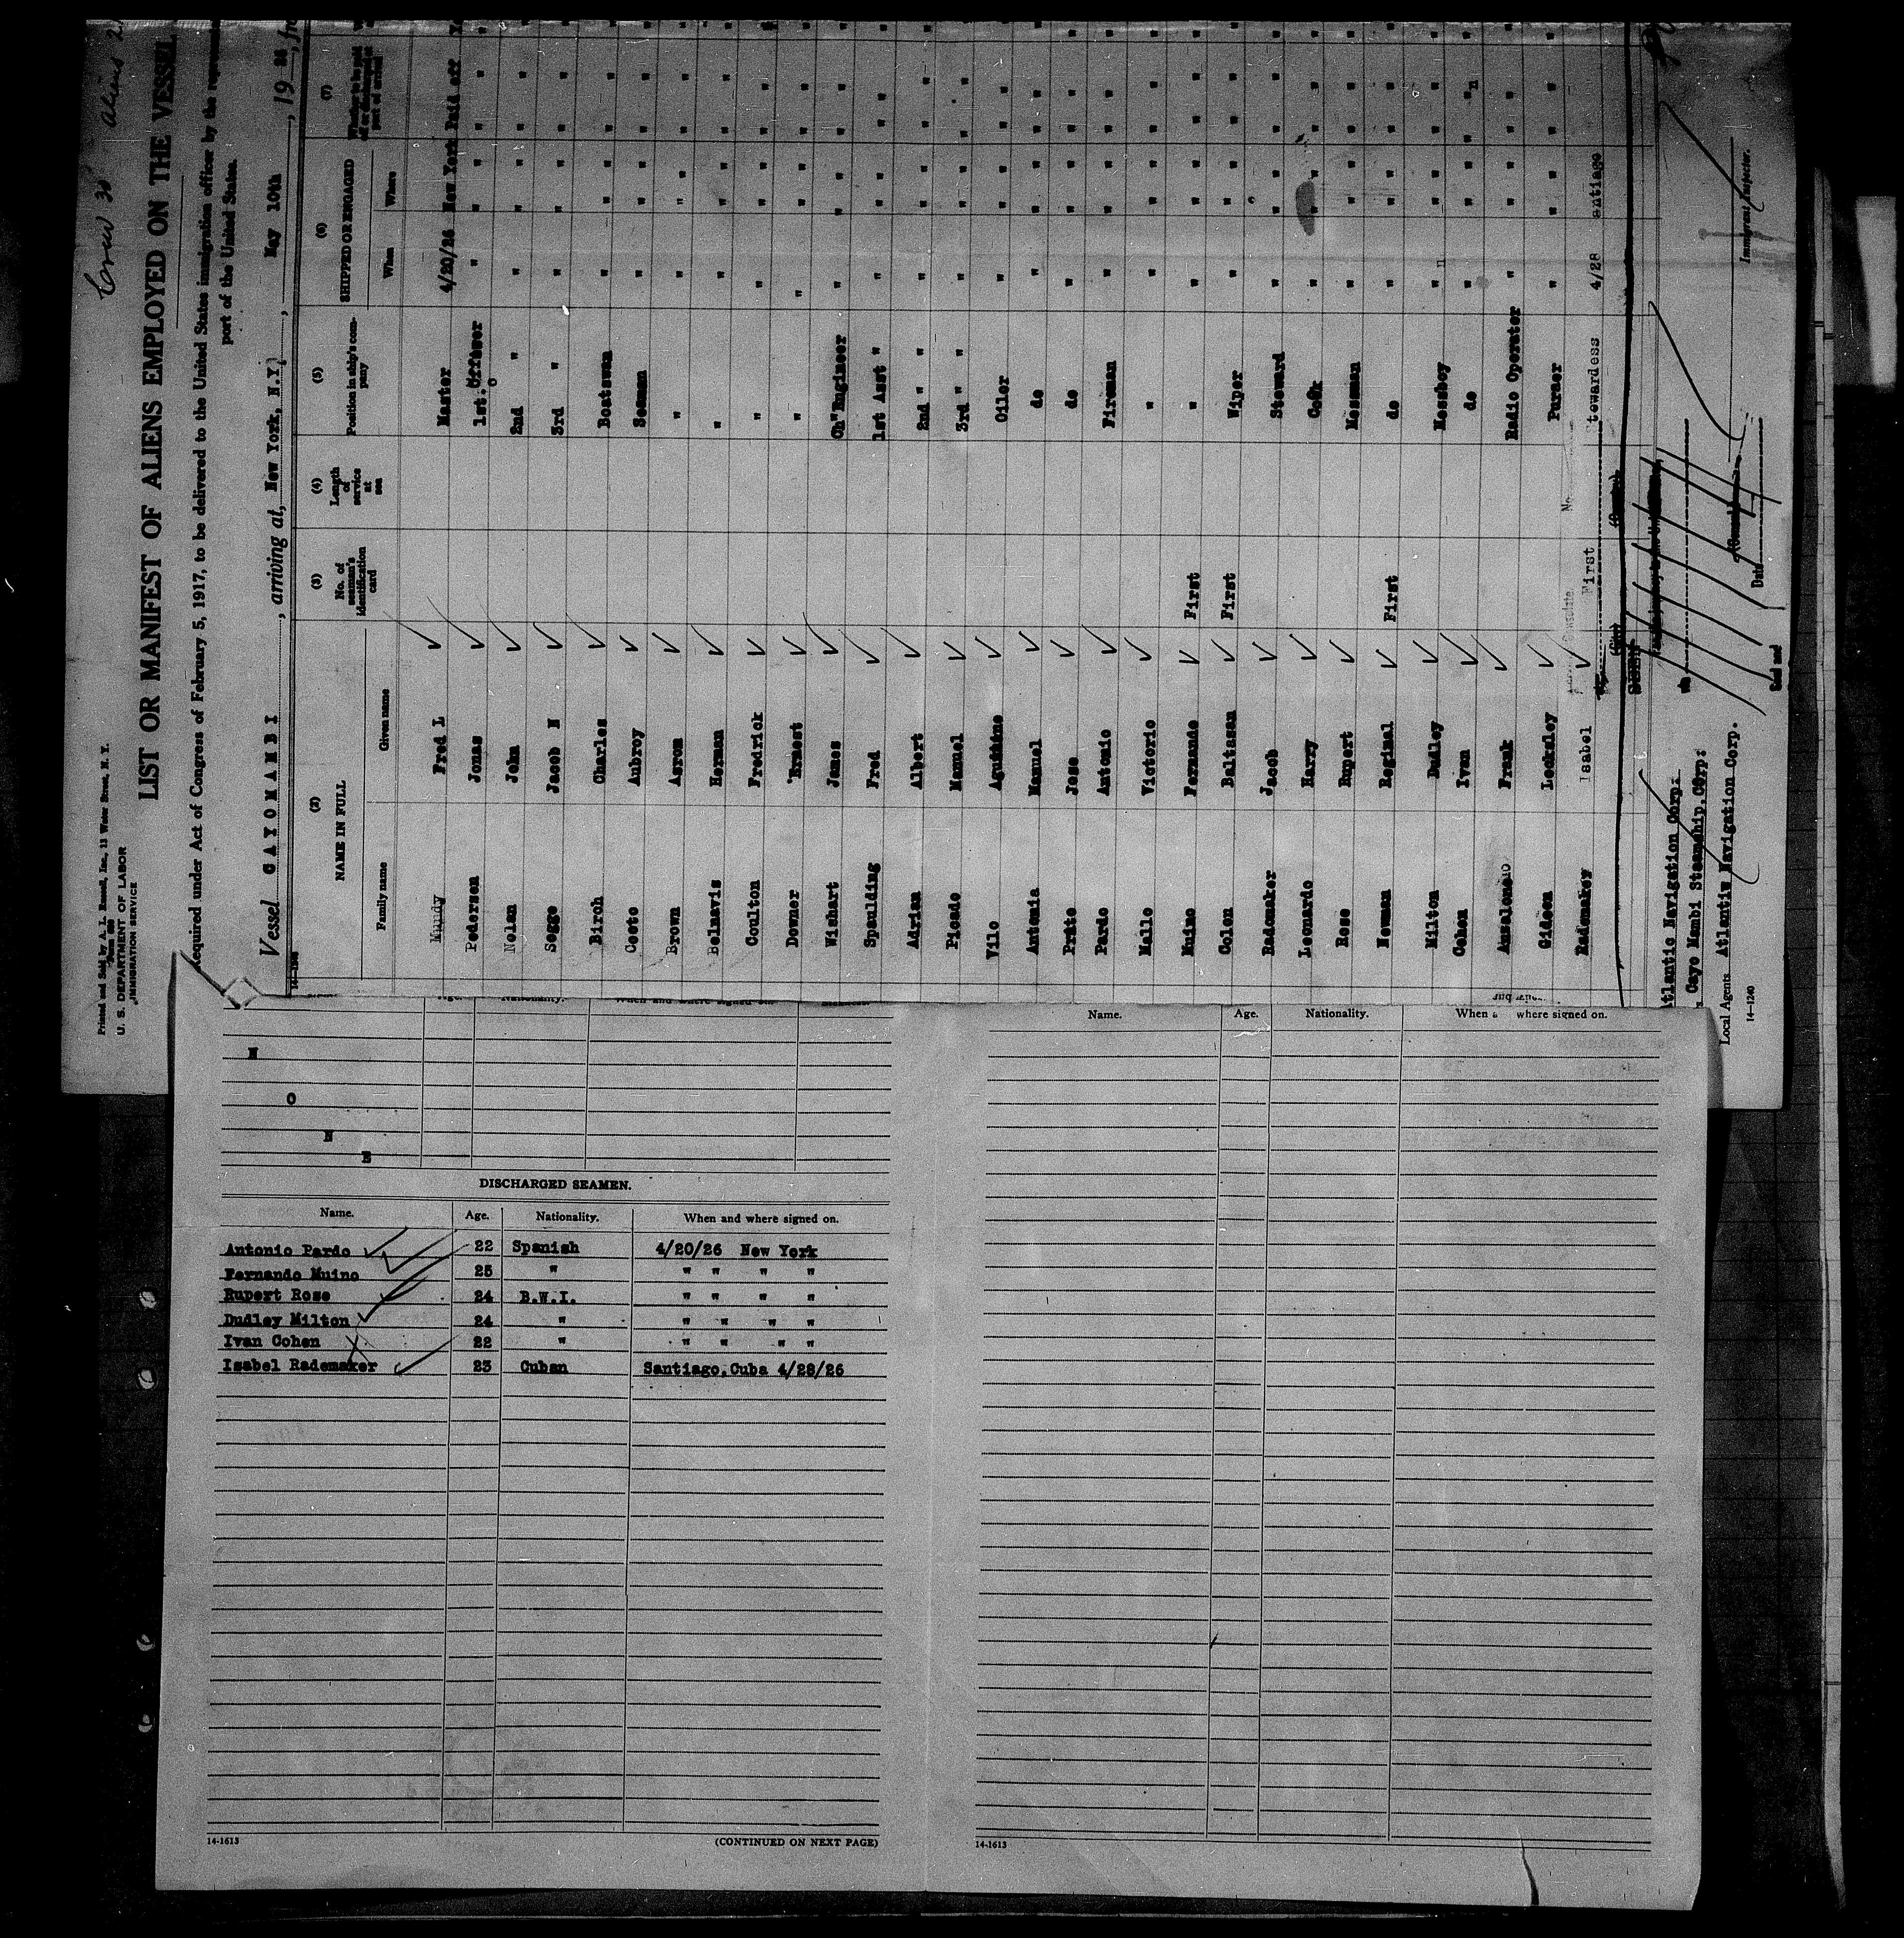 Crew 30 aliens
Printed and Sold by A. L. Russell, Inc., 13 Water Street, N. Y.
Form 689
U. S. DEPARTMENT OF LABOR
IMMIGRATION SERVICE
LIST OR MANIFEST OF ALIENS EMPLOYED ON THE VESSEL
Required under Act of Congress of February 5, 1917, to be delivered to the United States immigration officer by the
port of the United States.
Vessel CAYOMAMBI, arriving at, New York, N.Y, May 10th, 19 26,
14—1240
(2) (3) (4) (5) (6) (7)
NAME IN FULL No. of seaman's identification card Length of service at sea Position in ship's company SHIPPED OR ENGAGED Whether to be paid off or discharged at port of arrival
Family name Given name When Where
Mundy Fred L Master 4/20/26 New York Paid off
Pedersen Jonas 1st. Officer " " " " "
Nolan John 2nd " " " " " "
Segge Jacob N 3rd " " " " " "
Birch Charles Boatswan " " " " "
Coote Aubroy Seaman " " " " "
Brown Aaron " " " " " "
Belnavis Herman " " " " " "
Coulton Fredrick " " " " " "
Downer Ernest " " " " " "
Wishart James Ch"Engineer " " " " "
Spaulding Fred 1st Asst " " " " " "
Adrian Albert 2nd " " " " " " "
Picado Manuel 3rd " " " " " " "
Vilo Agustine Oiler " " " " "
Antonia Manuel do " " " " "
Prato Jose do " " " " "
Pardo Antonio Fireman " " " " "
Mallo Victorio " " " " " "
Muino Fernando First " " " " " "
Colon Baltasan First Wiper " " " " "
Rademaker Jacob Steward " " " " "
Leonardo Harry Cook " " " " "
Rose Rupert Messman " " " " "
Newman Reginal First do " " " " "
Milton Dudley Messboy " " " " "
Cohen Ivan do " " " " "
Anzalone Frank Radio Operator " " " " "
Gideon Locksley Purser " " " " "
Rademaker Isabel First Stewardess 4/28 antiago
Atlantic Navigation Corp.
Cayo Mambi Steamship.Corp:
Local Agents Atlantic Navigation Corp.
14—1240
Date
Immigrant Inspector.
N
O
N
E
DISCHARGED SEAMEN.
Name. Age. Nationality. When and where signed on.
Antonio Pardo 22 Spanish 4/20/26 New York
Fernando Muino 25 " " " " "
Rupert Rose 24 B.W.I. " " " "
Dudley Milton 24 " " " " "
Ivan Cohen 22 " " " " "
Isabel Rademaker 23 Cuban Santiago,Cuba 4/28/26
14-1613
(CONTINUED ON NEXT PAGE)
Name. Age. Nationality. When a where signed on.
14-1613